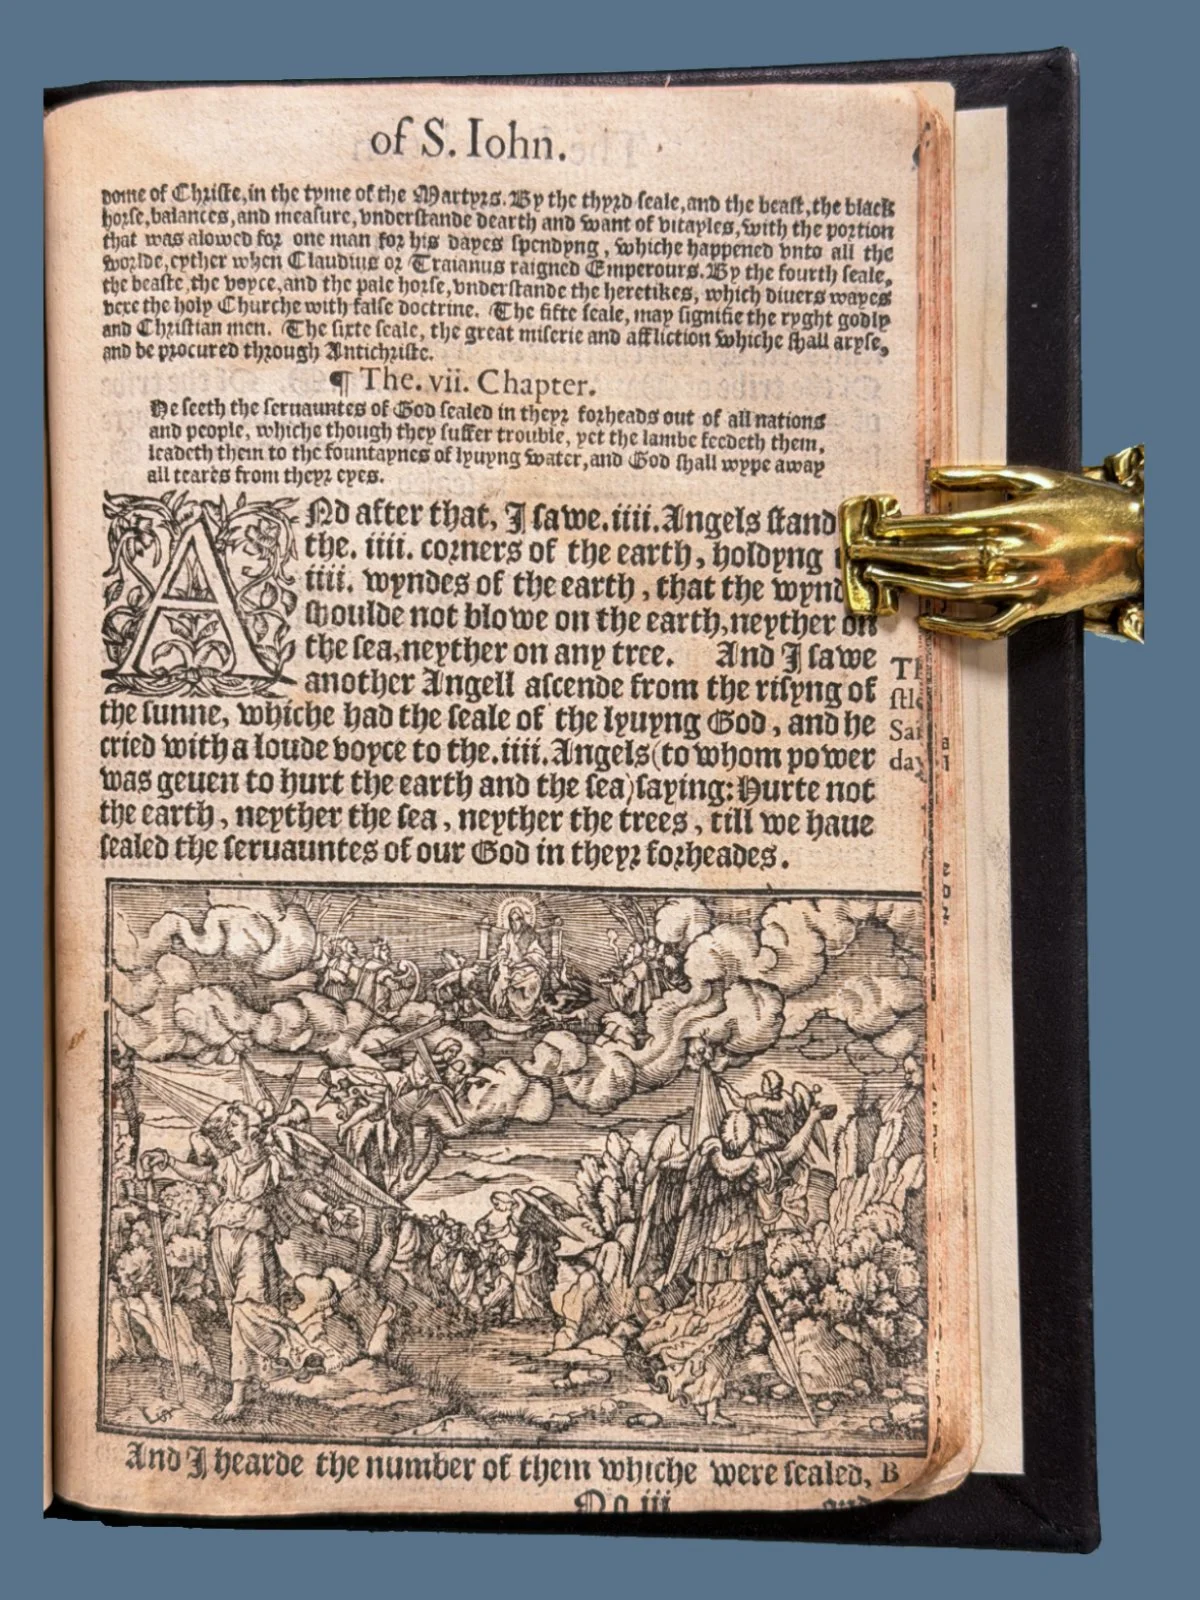 of S. Iohn.
dome of Christe, in the tyme of the Martyrs. By the thyrd seale, and the beast, the black
horse, balances, and measure, vnderstande dearth and want of vitayles, with the portion
that was alowed for one man for his dayes spendyng, whiche happened vnto all the
worlde, eyther when Claudius or Traianus raigned Emperours. By the fourth seale,
the beaste, the voyce, and the pale horse, vnderstande the heretikes, which diuers wayes
vexe the holy Churche with false doctrine. The fifte seale, may signifie the ryght godly
and Christian men. The sixte seale, the great miserie and affliction whiche shall aryse,
and be procured through Antichriste.
¶ The. vii. Chapter.
He seeth the seruauntes of God sealed in theyr forheads out of all nations
and people, whiche though they suffer trouble, yet the lambe feedeth them,
leadeth them to the fountaynes of lyuyng water, and God shall wype away
all teares from theyr eyes.
ANd after that, I sawe. iiii. Angels stand
the. iiii. corners of the earth, holdyng
iiii. wyndes of the earth, that the wynd
shoulde not blowe on the earth, neyther on
the sea, neyther on any tree. And I sawe
another Angell ascende from the risyng of
the sunne, whiche had the seale of the lyuyng God, and he
cried with a loude voyce to the. iiii. Angels (to whom power
was geuen to hurt the earth and the sea) saying: Hurte not
the earth, neyther the sea, neyther the trees, till we haue
sealed the seruauntes of our God in theyr forheades.
And I hearde the number of them whiche were sealed, B
Nn iii
and